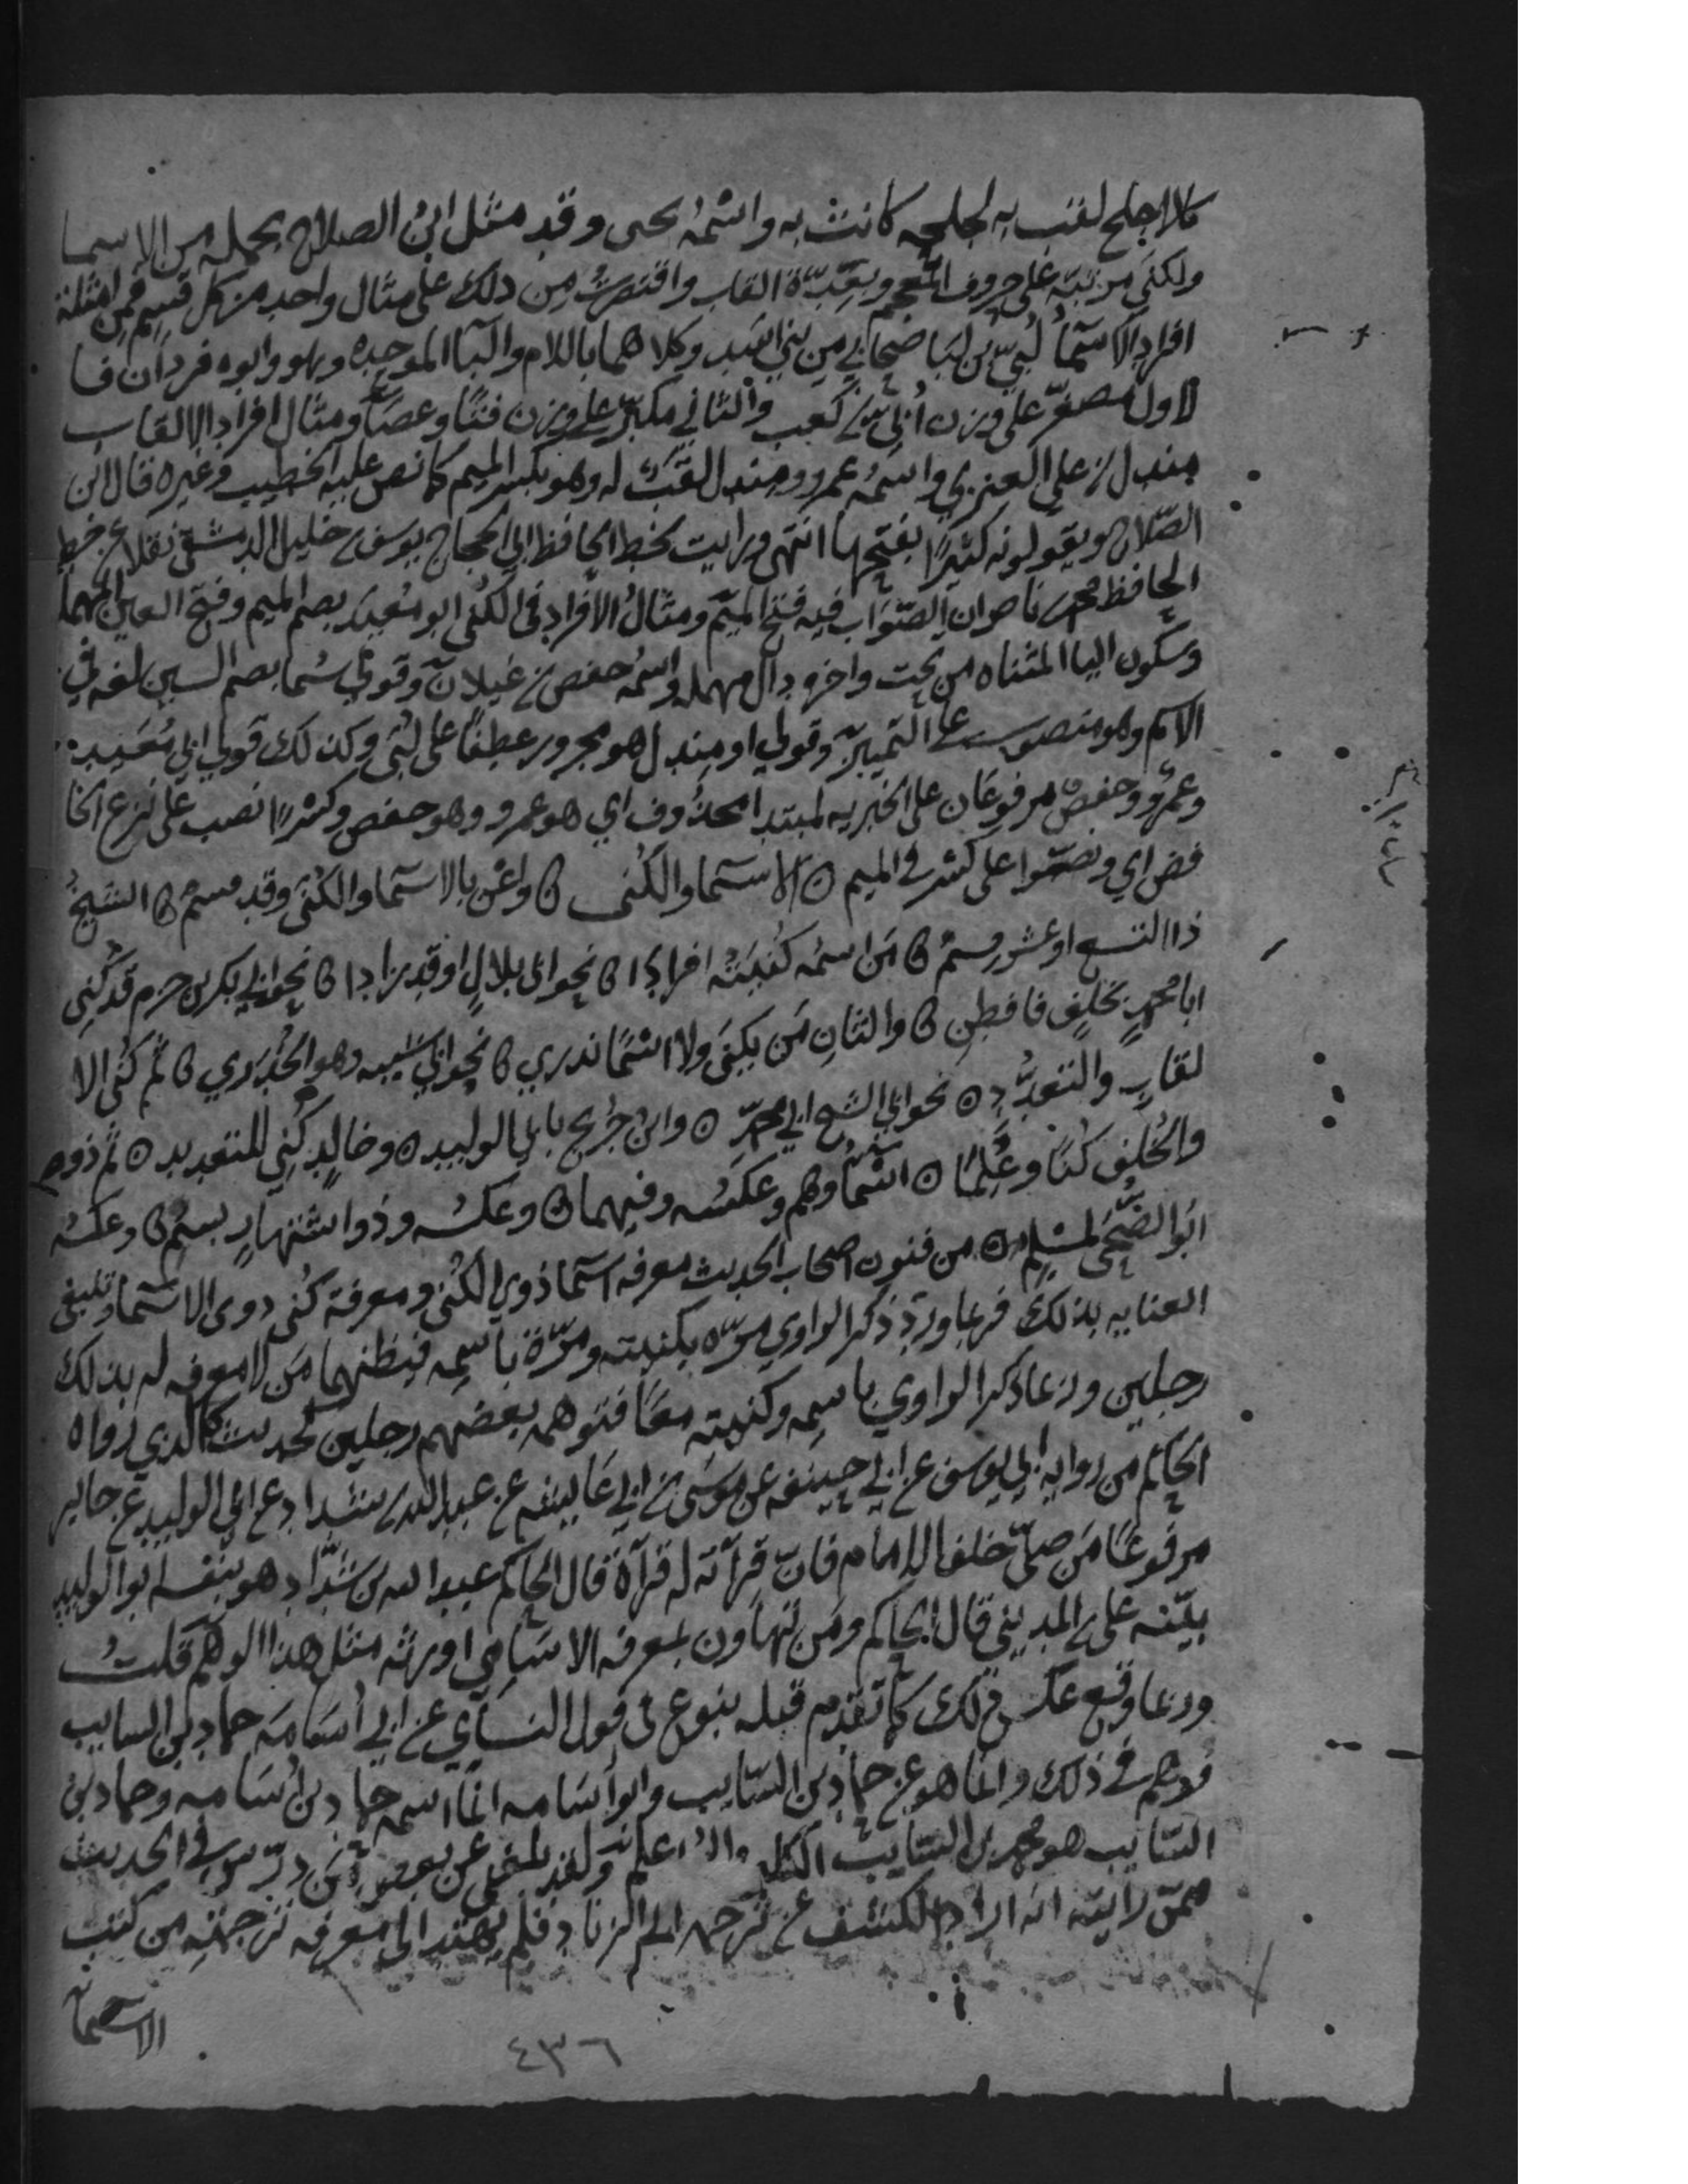 كالاجلح لقب به لجلحه كانت به واسمه يحيى وقد مثل ابن الصلاح بجمله من الاسما
ولكنى مرتبة على حروف المعجم وبعِدّة القاب واقتصرتُ من ذلك على مثال واحد من كل قسم فمن امثلة
افراد الاسما لُبَيّ بن لَبَا صحابي من بني اسد وكلاهما باللام والبا الموحده وهو وابوه فردان فا
لاول مصغّر على وزن اُبَيّ بن كعب والثاني مكبّر على وزن فتًا وعصًا ومثال افراد الالقاب
مندل بن علي العنزي واسمه عمرو ومندل لقبٌ له وهو بكسر الميم كما نص عليه الخطيب وغيره قال ابن
الصّلاح ويقولونه كثيرًا بفتحها انتهى ورايت بخط الحافظ ابي الحجاج يوسف بن خليل الدمشقي نقلا عن خط
الحافظ محمد بن ناصر ان الصّوَاب فيه فتح الميم ومثال الافراد في الكنى ابو مُعَيد بضم الميم وفتح العين المهملة
وسكون اليا المثناه من تحت واخره دال مهملة واسمه حفص بن غيلان وقولي سُما بضم السين لغه في
الاسم وهو منصوب على التمييز وقولي او مندل هو مجرور عطفًا على لُبَيّ وكذلك قولي ابي مُعَيد
وعمرٌو وحفصٌ مرفوعان على الخبريه لمبتدا محذوف اي هو عمرو وهو حفص وكسْرًا نصب على نزع الخا
فض اي ونصّوا على كسْر في الميم ۞ الاسما والكُنى ۞ واعْنِ بالاسما والكُنَى وقد قسم ۞ الشيخُ
ذا لتسع او عشر قسمٌ ۞ مَن اسمه كُنْيَتُه افرادًا ۞ نحو ابي بلالٍ او قد زادا ۞ نحو ابي بكر بن حزم قد كُنِي
ابا محمدٍ بخلفٍ فافطنِ ۞ والثانِ مَن يكنى ولا اسمًا ندري ۞ نحو ابي شيبه وهو الخُدري ۞ ثم كُنَى الا
لقابِ والتعدّدِ ۞ نحو ابي الشيخ ابي محمّدِ ۞ وابنُ جُريج بابي الوليد ۞ وخالدٍ كُنِي للتعديد ۞ ثم ذووا
والخُلفِ كُنًا وعُلِمًا ۞ اسماوهم وعكسُه وفيهما ۞ وعكسه وذوا اشتهارٍ بسُمِ ۞ وعكسُه
ابو الضُّحَى لمسلمِ ۞ من فنون اصحاب الحديث معرفه اسما ذوي الكُنى ومعرفة كُنى ذوي الاسما وتنبغي
العنايه بذلك فربما ورد ذكر الراوي مرّه بكنيته ومرّة باسمه فيظنهما مَن لا معرفه له بذلك
رجلين وربما ذكر الراوي باسمه وكنيته معًا فتوهمه بعضهم رجلين كحديث الذي رواه
الحاكم من روايه ابي يوسف عن ابي حنيفه عن موسى بن ابي عايشه عن عبد الله بن شداد عن ابي الوليد عن جابر
مرفوعًا مَن صلّى خلف الامام فان قرآته له قرآةٌ قال الحاكم عبد الله بن شدّاد هو بنفسه ابو الوليد
بيّنه علي بن المديني قال الحاكم ومَن تهاون بمعرفه الاسامي اورثه مثل هذا الوهم قلتُ
وربما وقع عكس ذلك كما تقدم قبله بنوع في قول النسآي عن ابي اسَامه حماد بن السايب
ووهم في ذلك وانما هو عن حماد بن السّايب وابو اسَامه انما اسمه حماد بن اُسَامه وحماد بن
السّايب هو محمد بن السّايب الكلبي والله اعلم ولقد بلغني عن بعض من درّس في الحديث
ممّن رايته انه اراد الكشف عن ترجمه ابي الزناد فلم يهتد الى معرفه ترجمته من كتب
الاسما
٤٣٦